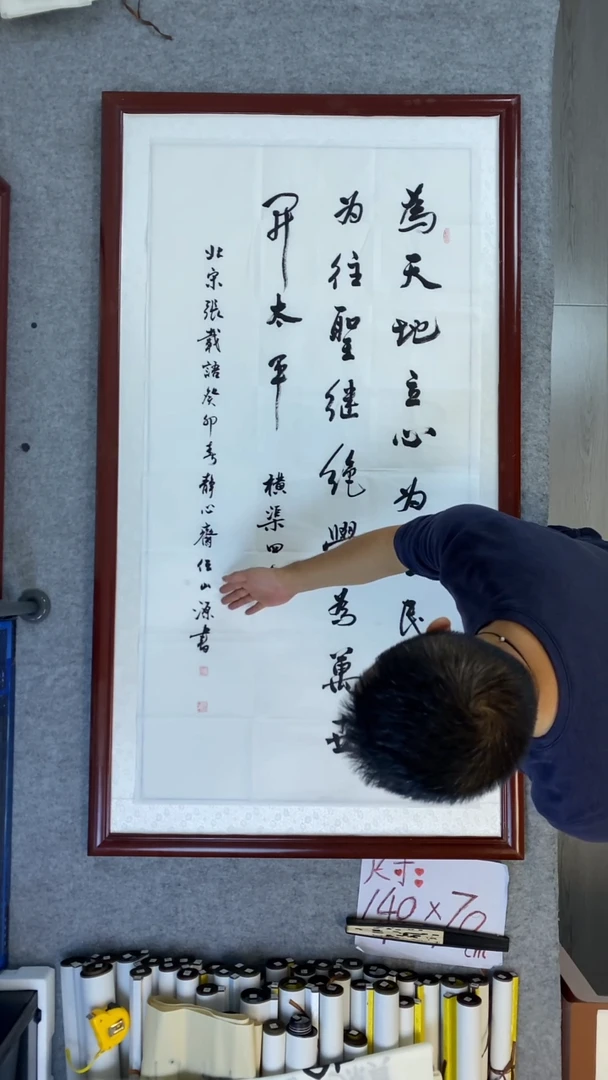 為天地立心为民
为往聖继绝學為萬世
開太平 横渠四
北宋張載語癸卯春静心齋任山源書
尺寸:
140×70
cm